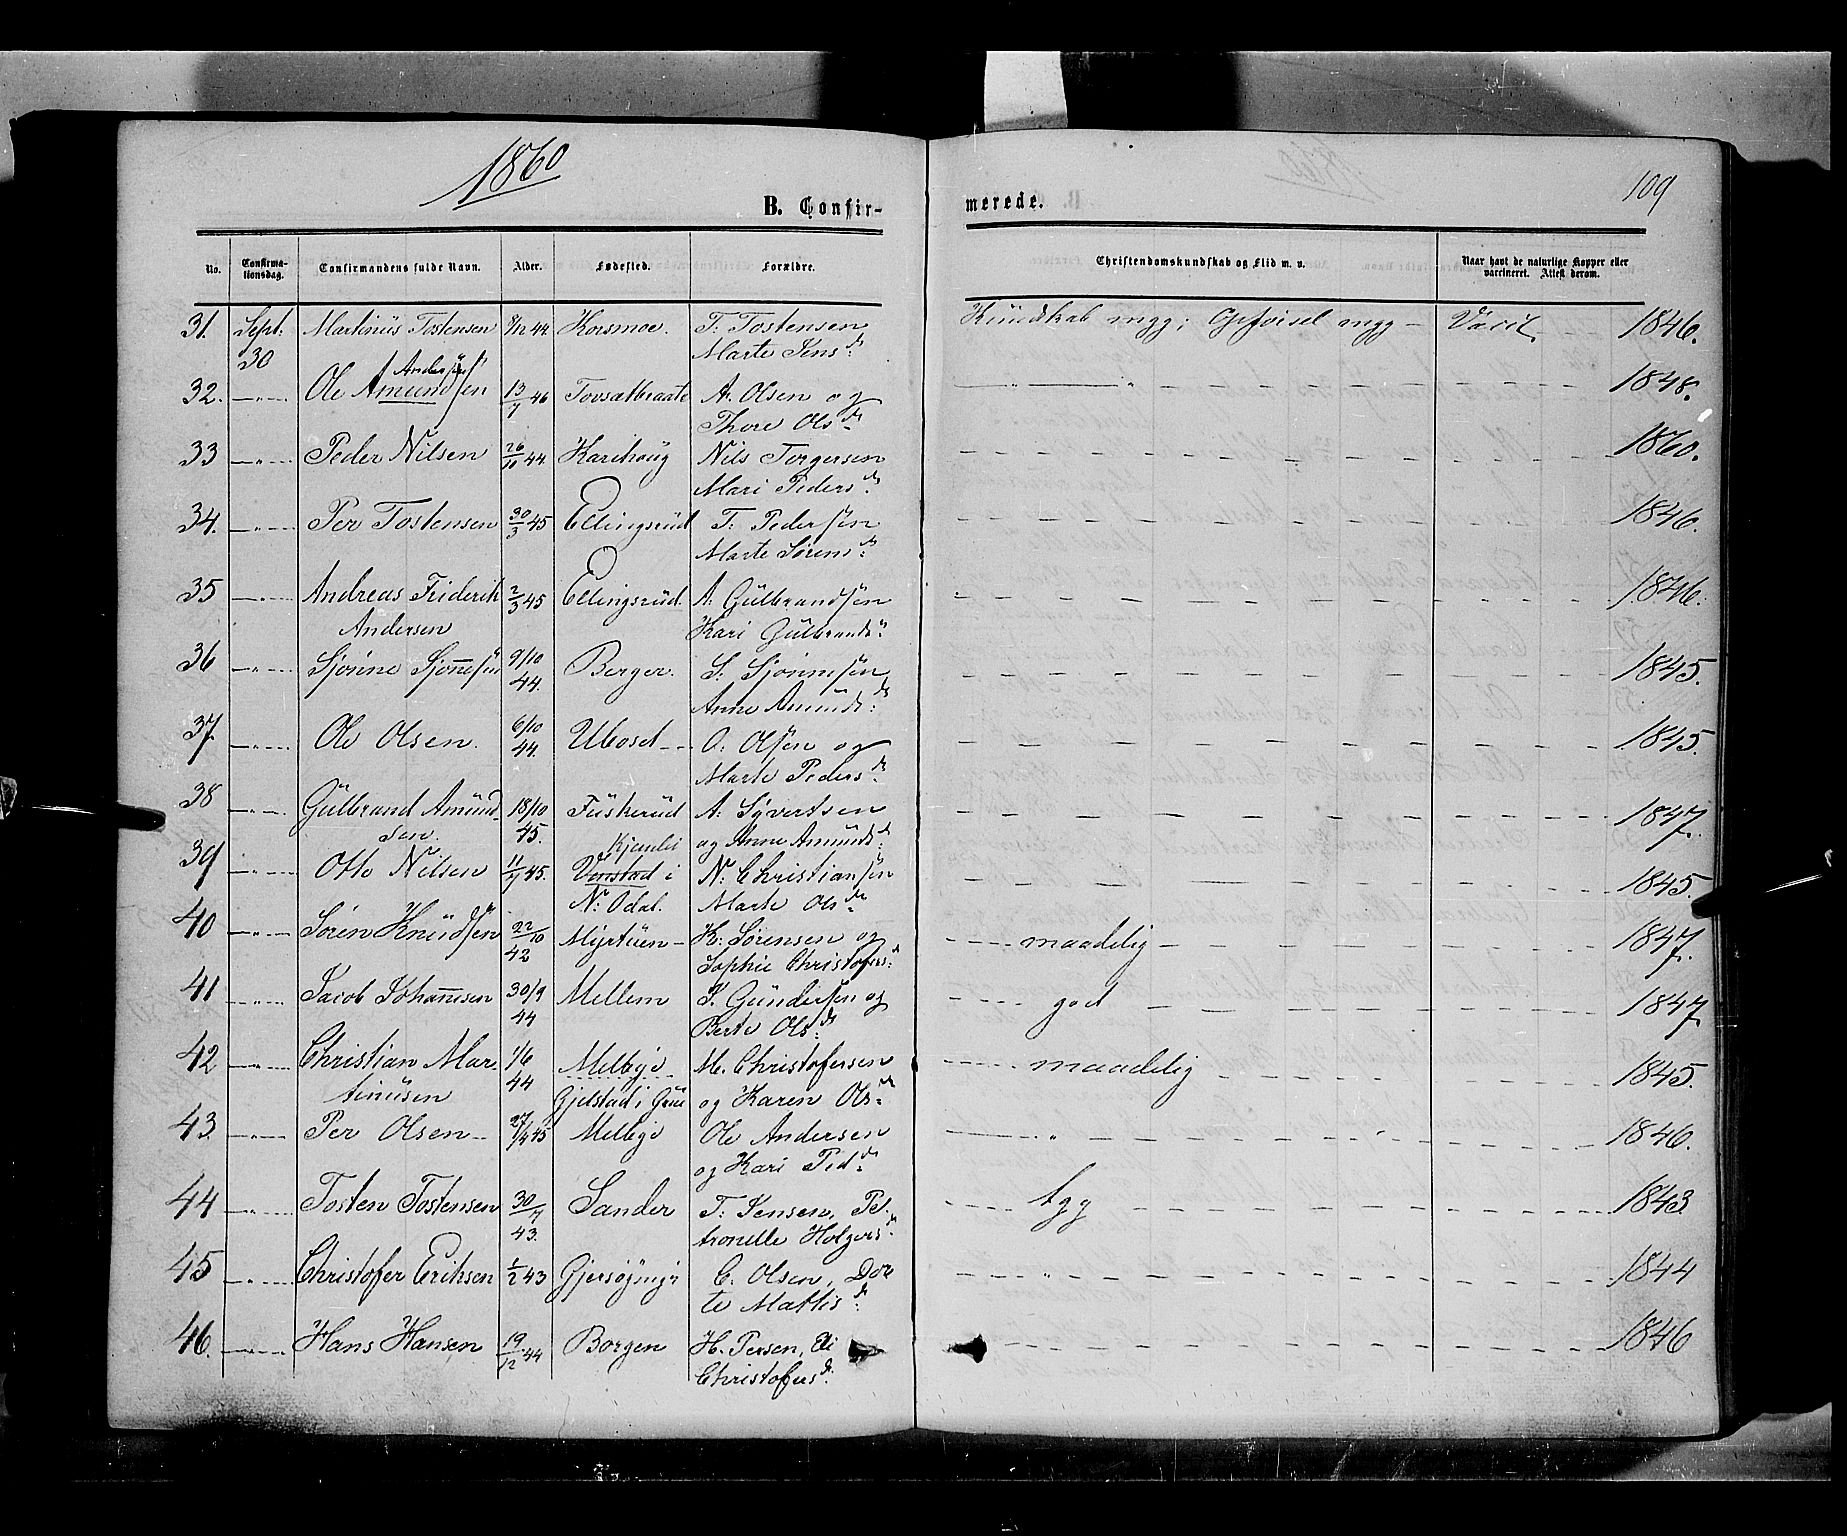 1860
109
B. Confirmerede.
No. Confirmationsdag. Confirmandens fulde Navn. Alder. Fødested. Forældre. Christendomskundskab og Flid m. v. Naar havt de naturlige Kopper eller vaccineret. Attest derom.
31. Sept: 30 Martinus Tostensen 8/12 44 Korsmoe. T. Tostensen Kundskab mgg; Opførsel mgg – Vacc. 1846.
Marte Jensd:
32. —"— Ole Amundsen 13/7 46 A. Olsen og —"— 1848.
Andersen
Thore Olsd:
33 —"— Peder Nilsen 26/11 44. Karihoug Nils Torgersen 1860.
Mari Pedersd:
34. —"— Per Tostensen 30/3 45 Ellingsrud T: Pedersen 1846.
Marte Sørensd:
35 —"— Andreas Friderik 2/3 45 Ellingsrud. A: Gulbrandsen 1846.
Andersen Kari Gulbrands"
36 —"— Sjønne Sjønnesen 9/10 44. Berger. S. Sjønnesen 1845.
Anne Amundsd:
37 —"— Ole Olsen. 6/10 44. Ulvoset O: Olsen og 1845.
Marte Pedersd:
38 —"— Gulbrand Amund- 18/10 45. Fuskerud A: Syvertsen 1847.
sen. og Anne Amundsd:
39 —"— Otto Nilsen 11/7 45. i N: Christiansen 1845.
N: Odal. Marte Olsd:
40 —"— Søren Knudsen 22/10 42 Myrtuen – K: Sørensen og maadelig – 1847.
Sophie Christofersd:
41 —"— Jacob Johannesen 30/9 44 Mellem J. Gundersen og god – 1847.
Berte Olsd:
42 —"— Christian Mar- 1/6 44 Melbye M. Christofersen maadelig 1845.
tinusen Gjelstad i Grue og Karen Olsd:
43. —"— Per Olsen – 27/4 45 Melbye Ole Andersen —"— 1846.
og Kari Pedd:
44 —"— Tosten Tostensen 30/7 43. Sander T: Jensen, Pe- tgg 1843
tronelle Holgersd:
45 —"— Christofer Eriksen 1/2 43 Olsen, Dor- —"— 1844
te Mattisd:
46. —"— Hans Hansen 19/12 44 Borgen H. Persen, Eli 1846
Christofersd: